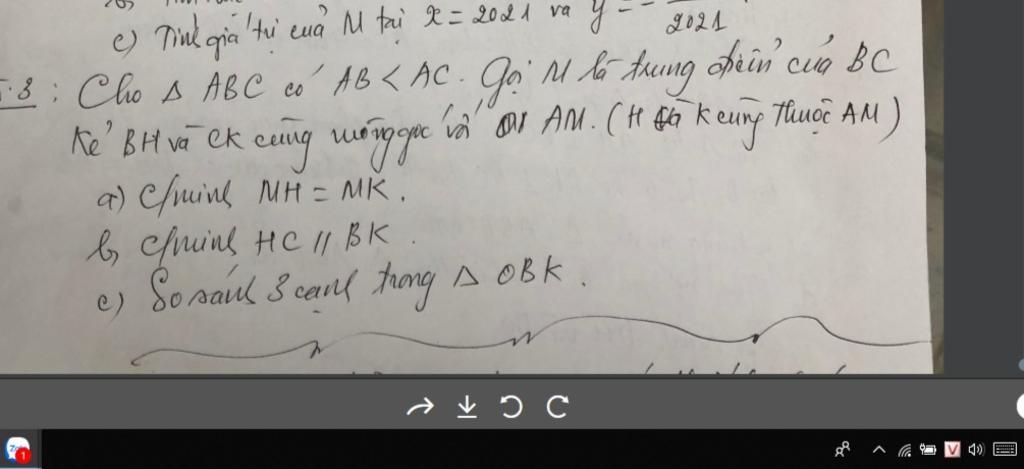 c) Tính giá trị của M tại x = 2021 và y = - 2021
.3 : Cho Δ ABC có AB < AC. Gọi M là trung điểm của BC
Kẻ BH và CK cùng vuông góc với AM. (H và K cùng thuộc AM)
a) C/minh MH = MK.
b, C/minh HC // BK.
c) So sánh 3 cạnh trong Δ OBK.
Zalo
1
V